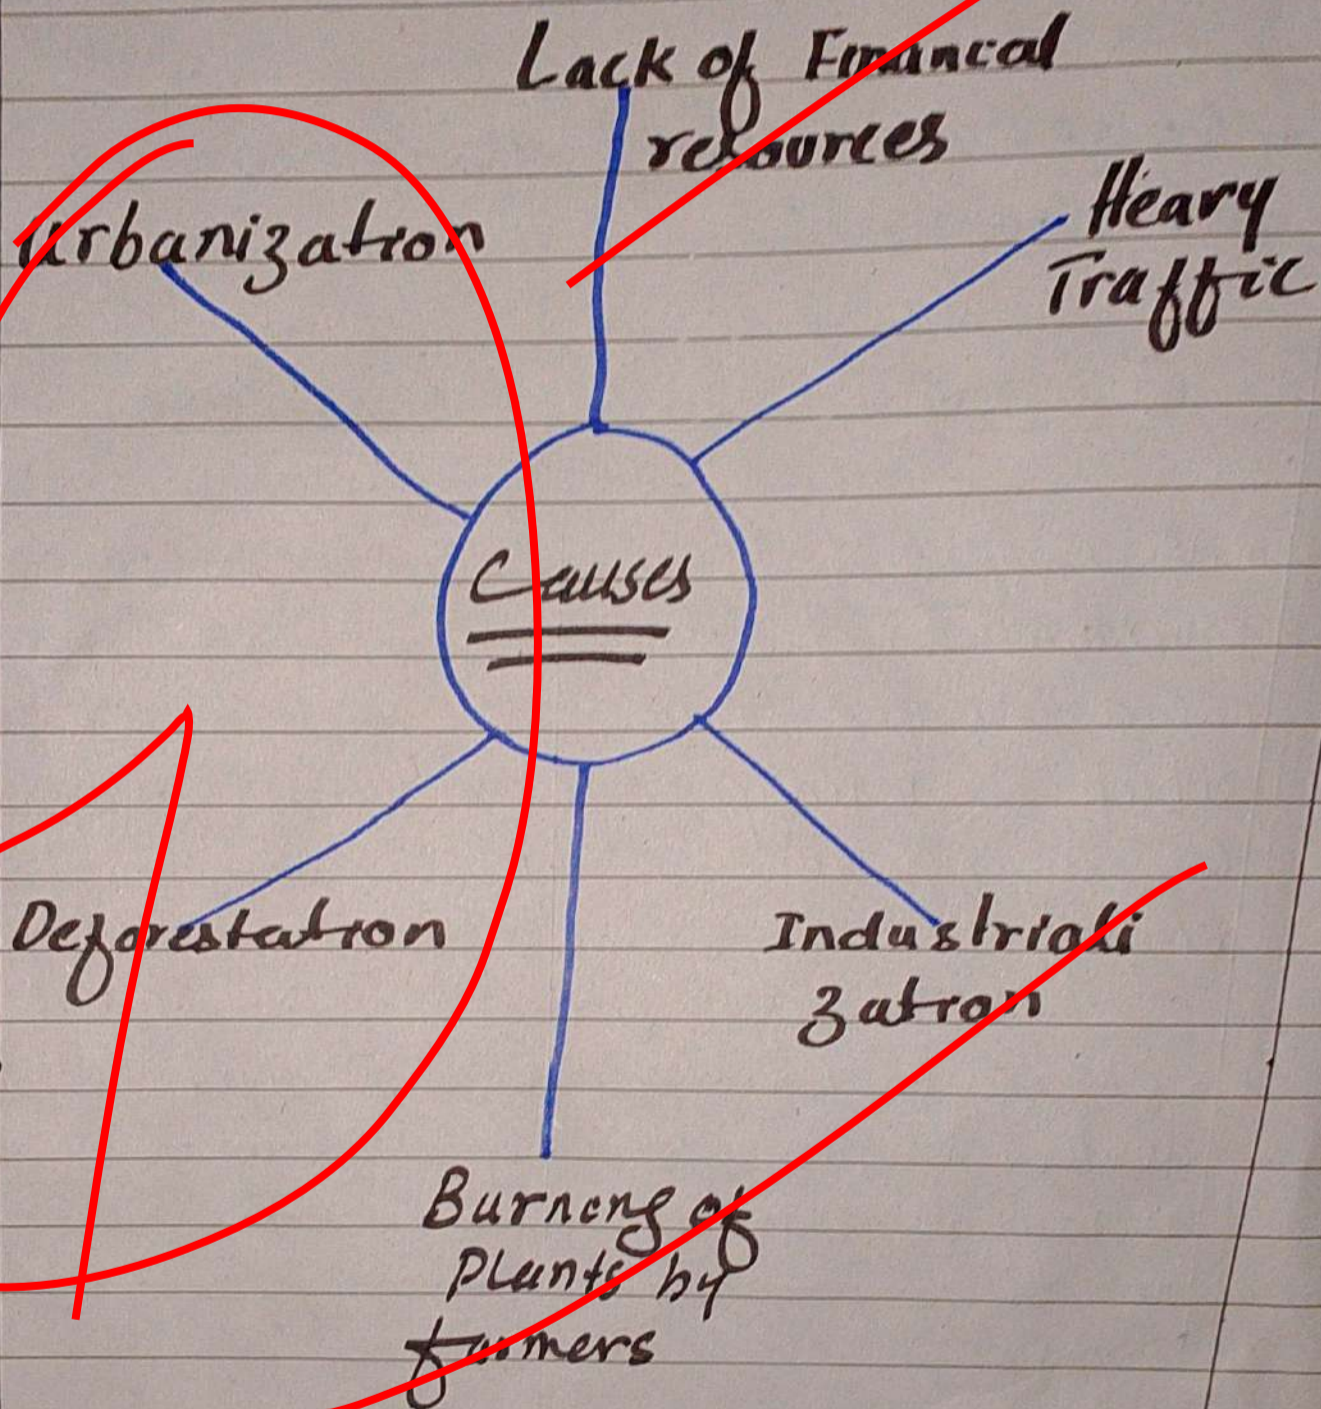 Lack of Financal
resources
Heavy
Traffic
Urbanization
Causes
Deforestation
Industriali
zation
Burning of
Plants by
farmers